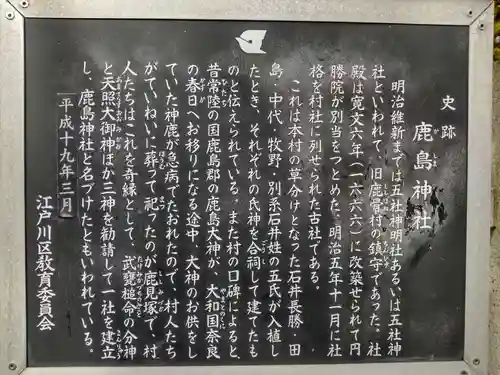 史跡
鹿島神社
かしま
明治維新までは五社神明社あるいは五社神
社といわれて、旧鹿骨村の鎮守であった。社
ししぼね
殿は寛文六年(一六六六)に改築せられて円
勝院が別当をつとめた、明治五年十一月に社
格を村社に列せられた古社である。
これは本村の草分けとなった石井長勝・田
島・中代・牧野・別系石井姓の五氏が入植し
たとき、それぞれの氏神を合祠して建てたも
のと伝えられている。また村の口碑によると
昔常陸の国鹿島郡の鹿島大神が、大和国奈良
の春日へお移りになる途中、大神のお供をし
かすが
ていた神鹿が急病でたおれたので、村人たち
がていねいに葬って祀ったのが鹿見塚で、村
ししみづか
人たちはこれを奇縁として、武甕槌命の分神
と天照大御神ほか三神を勧請して一社を建立
し、鹿島神社と名づけたともいわれている。
平成十九年三月
江戸川区教育委員会